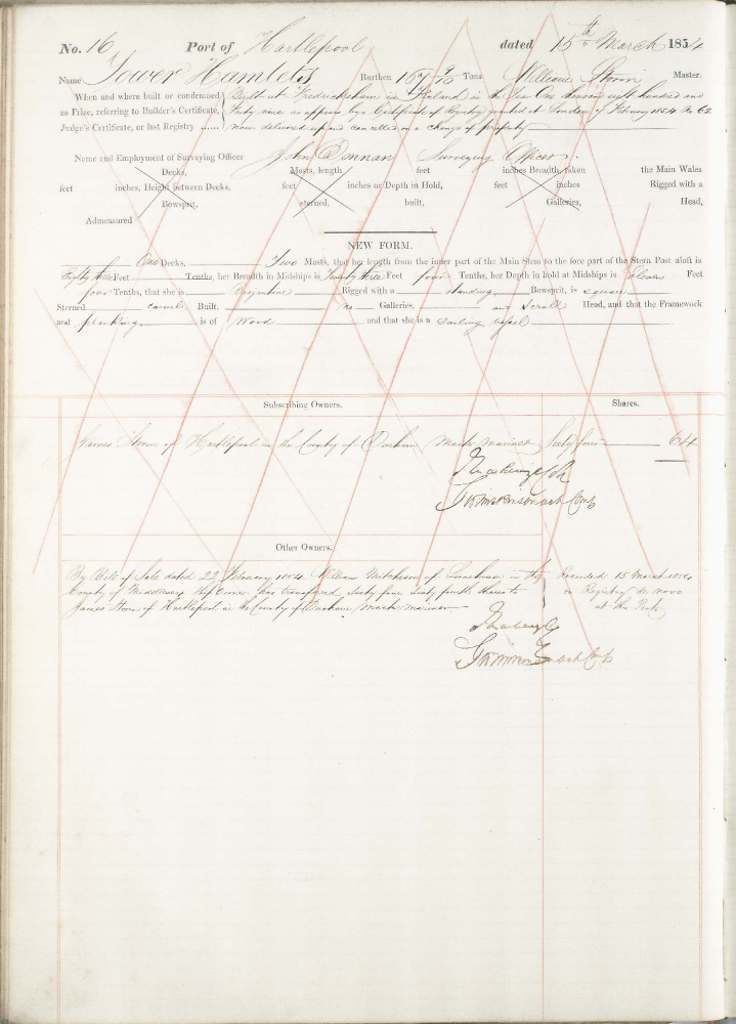 No. 16 Port of Hartlepool dated 15th March 1854
Name Tower Hamlets Burthen 167 Tons William Master.
When and where built or condemned Built at Fredricksham in Finland in the Year One thousand eight hundred and
as Prize, referring to Builder's Certificate, as appears by a Certificate of Registry granted at London of February 1854 No 62
Judge's Certificate, or last Registry now delivered up and cancelled on a change of property
Name and Employment of Surveying Officer John Donnan Surveying Officer
Decks, Masts, length feet inches Breadth taken the Main Wales
feet inches, Height between Decks, feet inches or Depth in Hold, feet inches Rigged with a
Bowsprit, sterned, built, Galleries, Head,
Admeasured
NEW FORM.
One Decks, Two Masts, that her length from the inner part of the Main Stem to the fore part of the Stern Post aloft is
Eighty three Feet Tenths, her Breadth in Midships is Twenty three Feet four Tenths, her Depth in hold at Midships is eleven Feet
four Tenths, that she is Brigantine Rigged with a standing Bowsprit, is square
Sterned carvel Built. no Galleries. and Scroll Head, and that the Framework
and planking is of Wood and that she is a sailing vessel
Subscribing Owners. Shares.
James of Hartlepool in the County of Durham Master Mariner Sixty four 64
Other Owners.
By Bill of Sale dated 22 February 1854 William Mitcheson of Limehouse in the Recorded 15 March 1854
County of Middlesex has transferred sixty four sixty fourth Shares to in Registry de novo
James of Hartlepool in the County of Durham Master Mariner at this Port